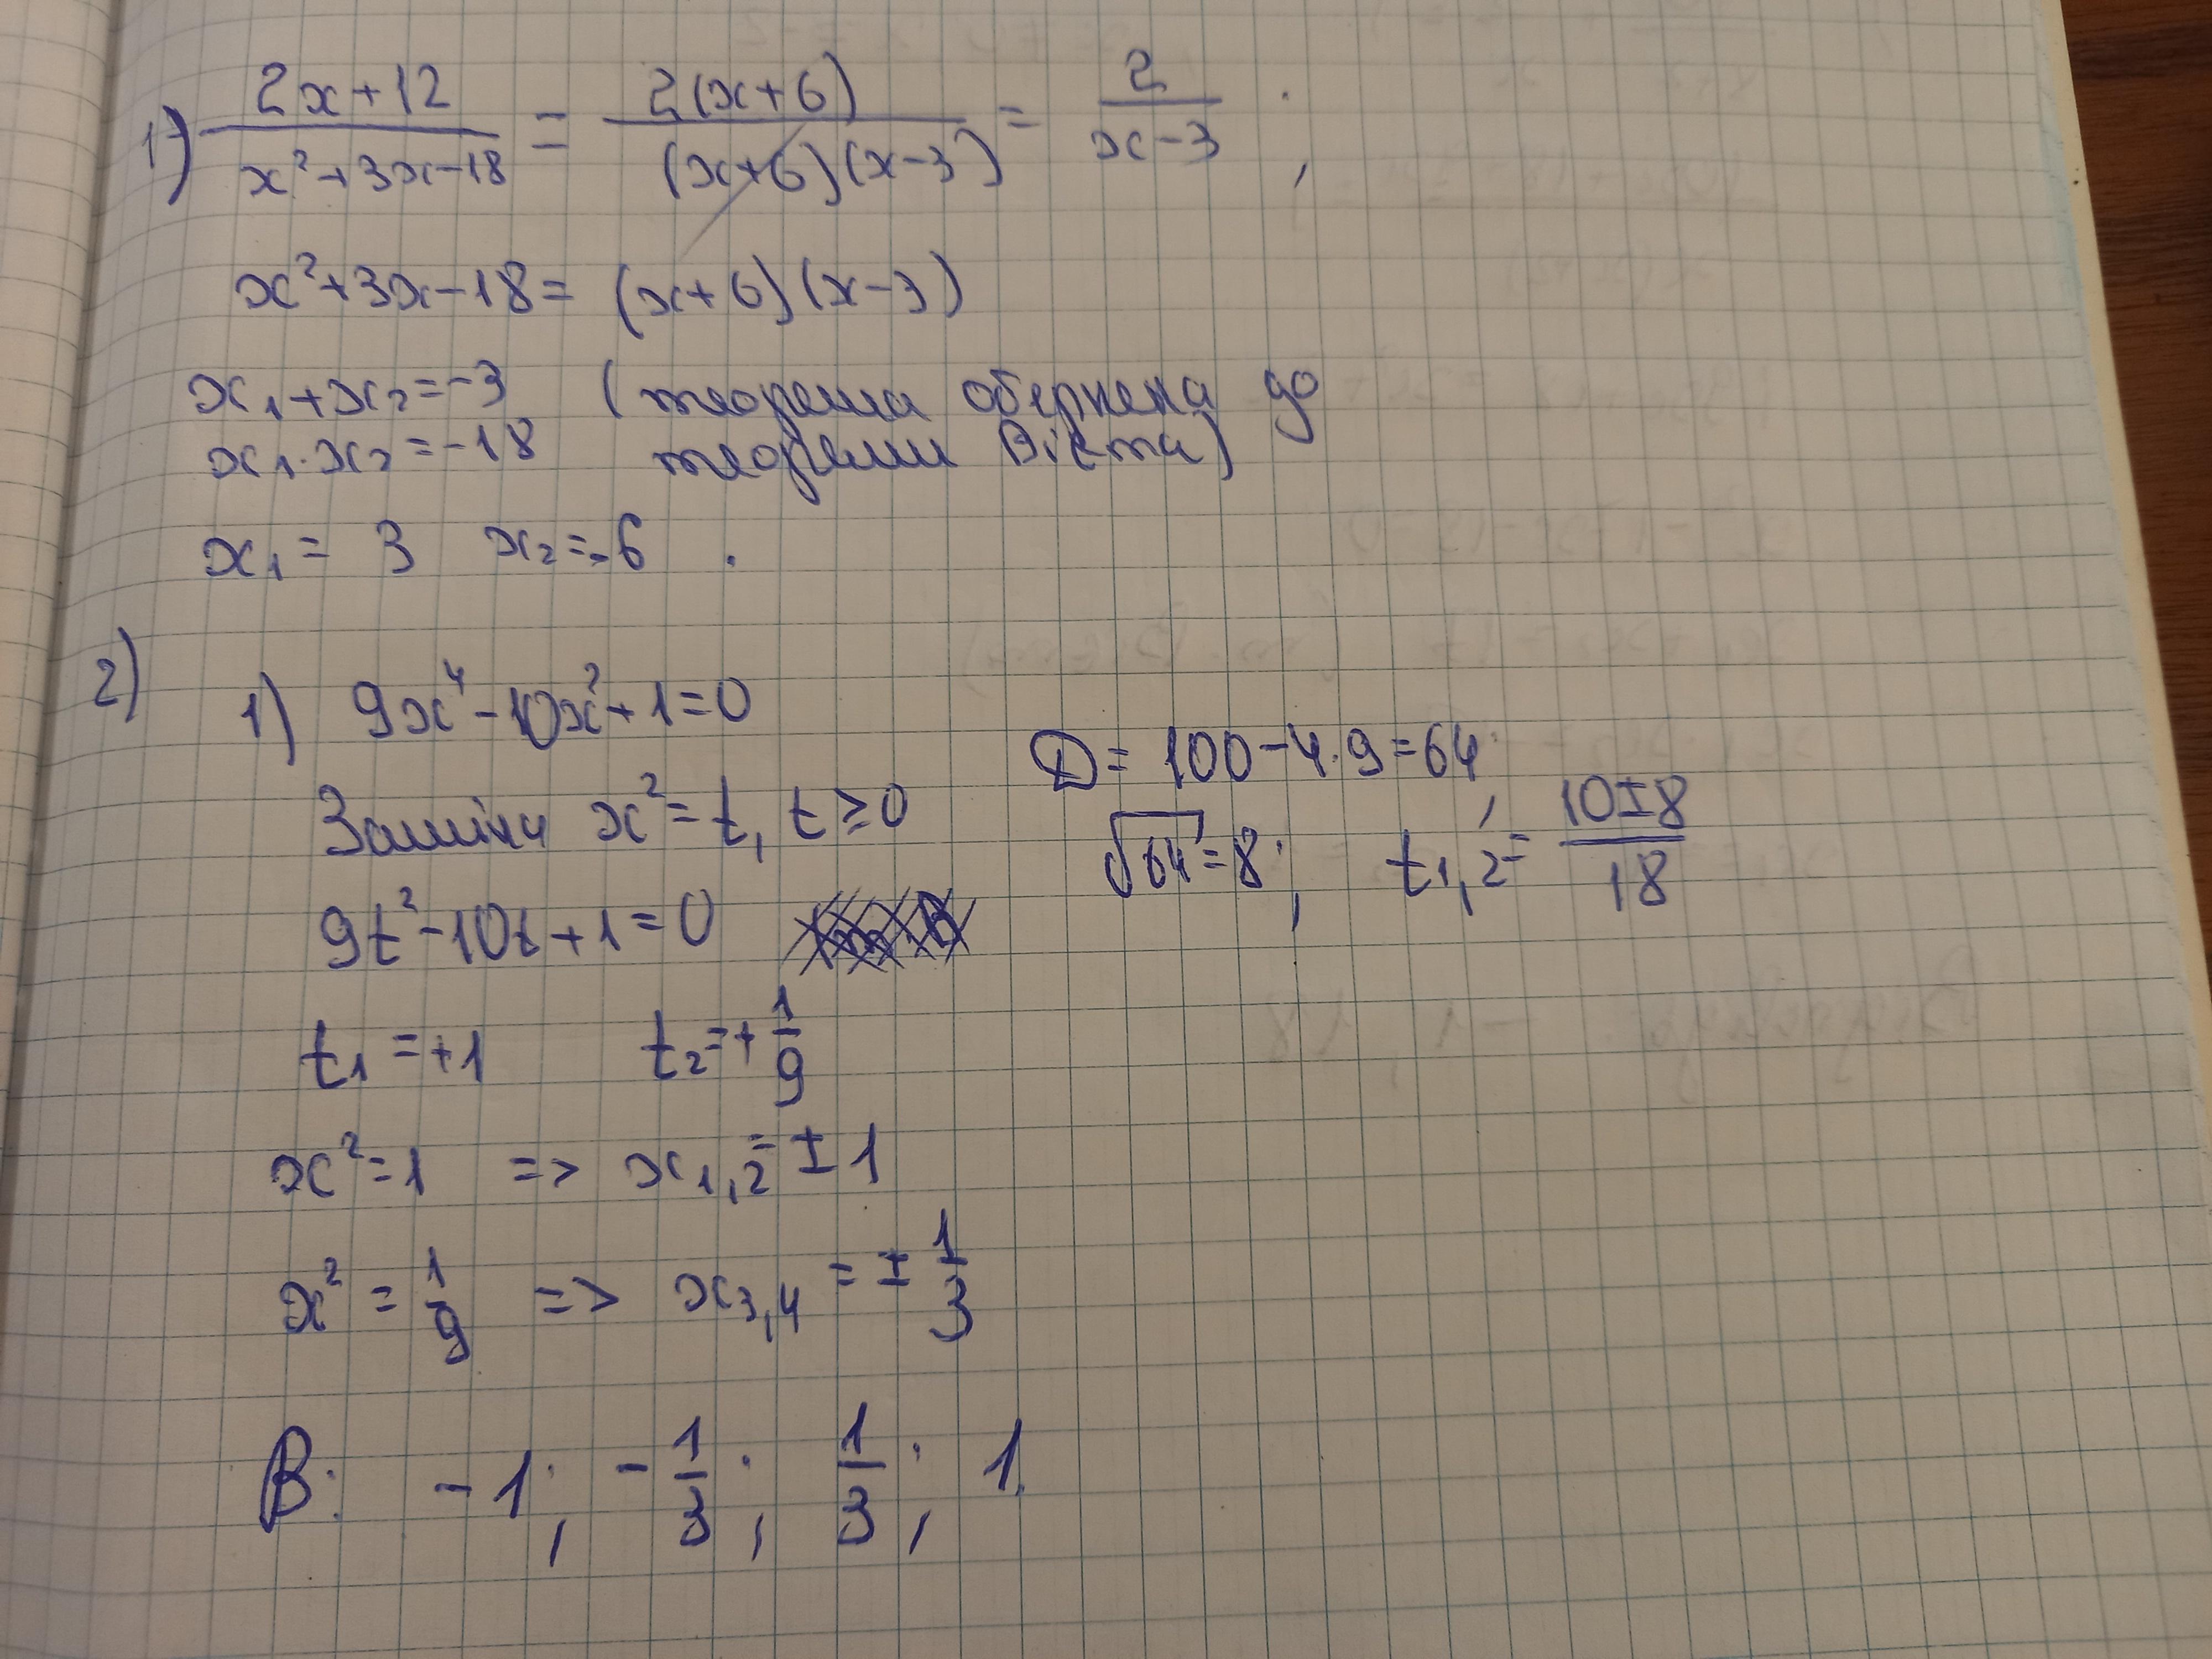 1) (2x+12)/(x²+3x-18) = 2(x+6)/((x+6)(x-3)) = 2/(x-3) ;
x²+3x-18= (x+6)(x-3)
x₁+x₂=-3 (теорема обернена до
x₁·x₂=-18 теореми Вієта)
x₁= 3 x₂=-6 .
2) 1) 9x⁴-10x²+1=0
D= 100-4·9=64;
Заміна x²=t, t≥0
√64=8; t₁,₂= (10±8)/18
9t²-10t+1=0
t₁=+1 t₂=+1/9
x²=1 => x₁,₂=±1
x²=1/9 => x₃,₄=±1/3
В: -1; -1/3; 1/3; 1.